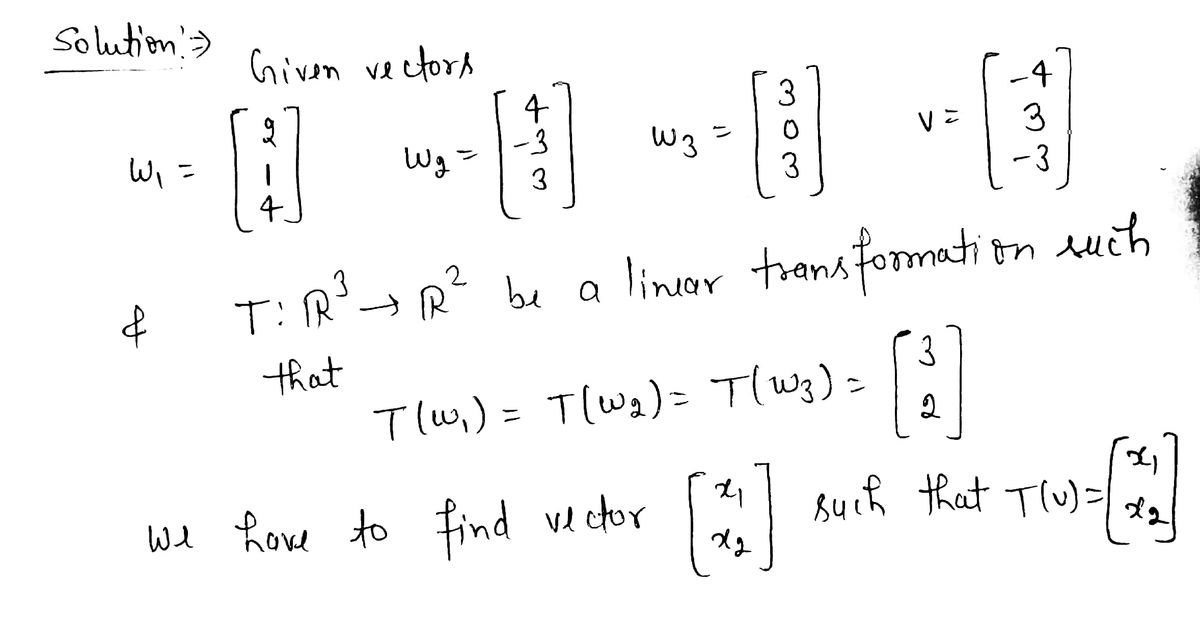 Solution:⇒
Given vectors
w₁ = [2 1 4] w₂ = [4 -3 3] w₃ = [3 0 3] v = [-4 3 -3]
& T: ℝ³ → ℝ² be a linear transformation such
that
T(w₁) = T(w₂) = T(w₃) = [3 2]
we have to find vector [x₁ x₂] such that T(v) = [x₁ x₂]